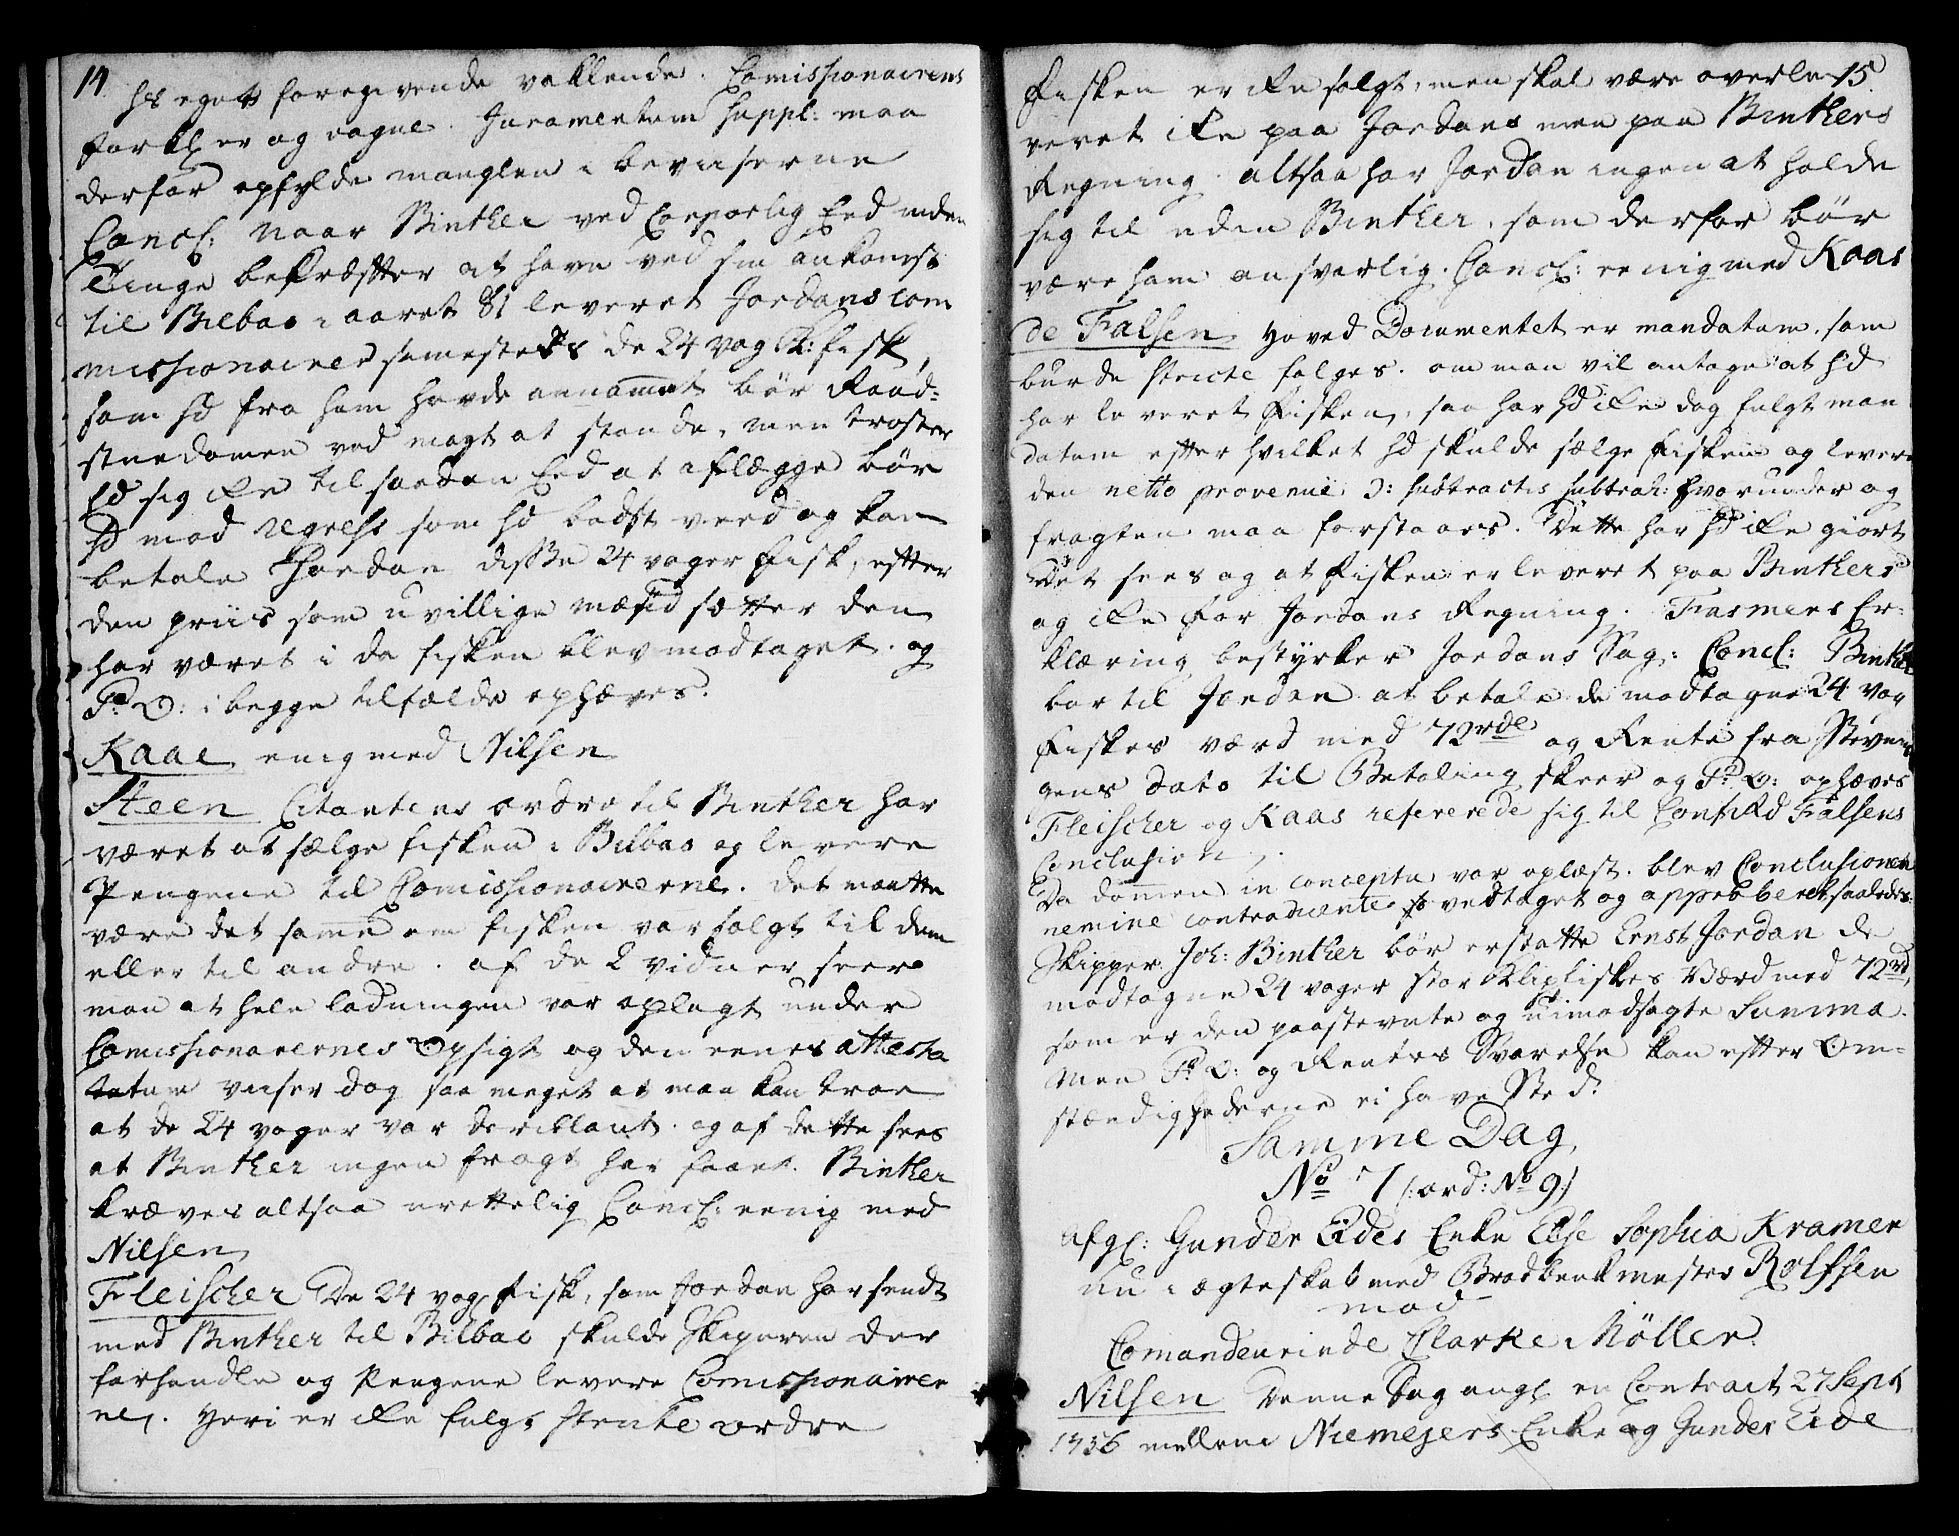 14
hs eget foregivende vaklende. Comissionairens
forkl er og vague. Juramentum suppl: maa
derfor opfylde manglen i beviserne
Concl: naar Binther ved Corporlig Eed inden
Tinge bekræfter at have ved sin ankomst
til Bilbao i aaret 81 leveret Jordans com
missionairer sammesteds de 24 vog Kl: fisk,
som hd fra ham havde annammet bör Raad-
stuedomen ved magt at stande, men trøster
hd sig ikke til saadan Eed at aflægge bör
hd mod regress som hd bedst veed og kan
betale Jordan disse 24 voger fisk, efter
den priis som uvillige mænd sætter den
har været i da fisken blev modtaget. og
P: O: i begge tilfælde ophæves.
Kaas enig med Nilsen
Steen Citantens ordre til Binther har
været at sælge fisken i Bilbao og levere
Pengene til Comissionairerne. Det maatte
være det samme om fisken var solgt til dem
eller til andre. af de 2 vidner seer
man at hele ladningen var oplagt under
Comissionairernes Opsigt og den eenes attesta
tatum viiser dog saa meget at man kan troe
at de 24 voger var deriblant. og af dette sees
at Binther ingen fragt har faaet. Binther
kræves altsaa urettelig Concl: eenig med
Nilsen
Fleischer De 24 vog fisk, som Jordan har sendt
med Binther til Bilbao skulde Skiperen der
forhandle og Pengene levere Comissionairer
ne. Heri er ikke fulgt strenke ordre
15
Fisken er ikke solgt, men skal være overle
veret ikke paa Jordans men paa Binthers
Regning. altsaa har Jordan ingen at holde
sig til uden Binther, som derfor bör
være ham ansvarlig. Concl: eenig med Kaas
de Falsen Hoved Documentet er mandatum, som
burde stricte følges. om man vil antage at hd
har leveret Fisken, saa har hd ikke dog fulgt man
datum efter hvilket hd skulde sælge Fisken og levere
den netto provenue ɔ: subtractis subtrah: hvorunder og
fragten maa forstaaes. Dette har hd ikke giort
Det sees og at fisken er leveret paa Binthers
og ikke for Jordans Regning. Fasmers Er-
klæring bestyrker Jordans Sag: Concl: Binther
bör til Jordan at betale de modtagne 24 vog
Fiskes værd med 72 rde og Rente fra Stevnin
gens dato til Betaling skeer og P: O: ophæves
Fleischer og Kaas refererede sig til Conf: Rd Falsens
Conclusion.
Da dommen in conceptu var oplæst. blev Conclusionen
nemine contradicente vedtaget og approberet saaledes:
Skipper Joh: Binther bör erstatte Ernst Jordan de
modtagne 24 voger stor Klipfiskes Værd med 72 rd,
som er den paastevnte og uimodsagte Summa.
Men P: O: og Rentes Svarelse kan efter Om-
stændighederne ei have Sted.
Samme Dag
No 7 (: ord: No 9:)
Afgl: Gunder Eides Enke Else Sophia Kramer
nu i ægteskab med Brødbænkmester Rolfsen
mod
Comandeurinde Clarke Möller.
Nilsen Denne Sag angl en Contract 27 Sept
1756 mellem Niemejers Enke og Gunder Eide